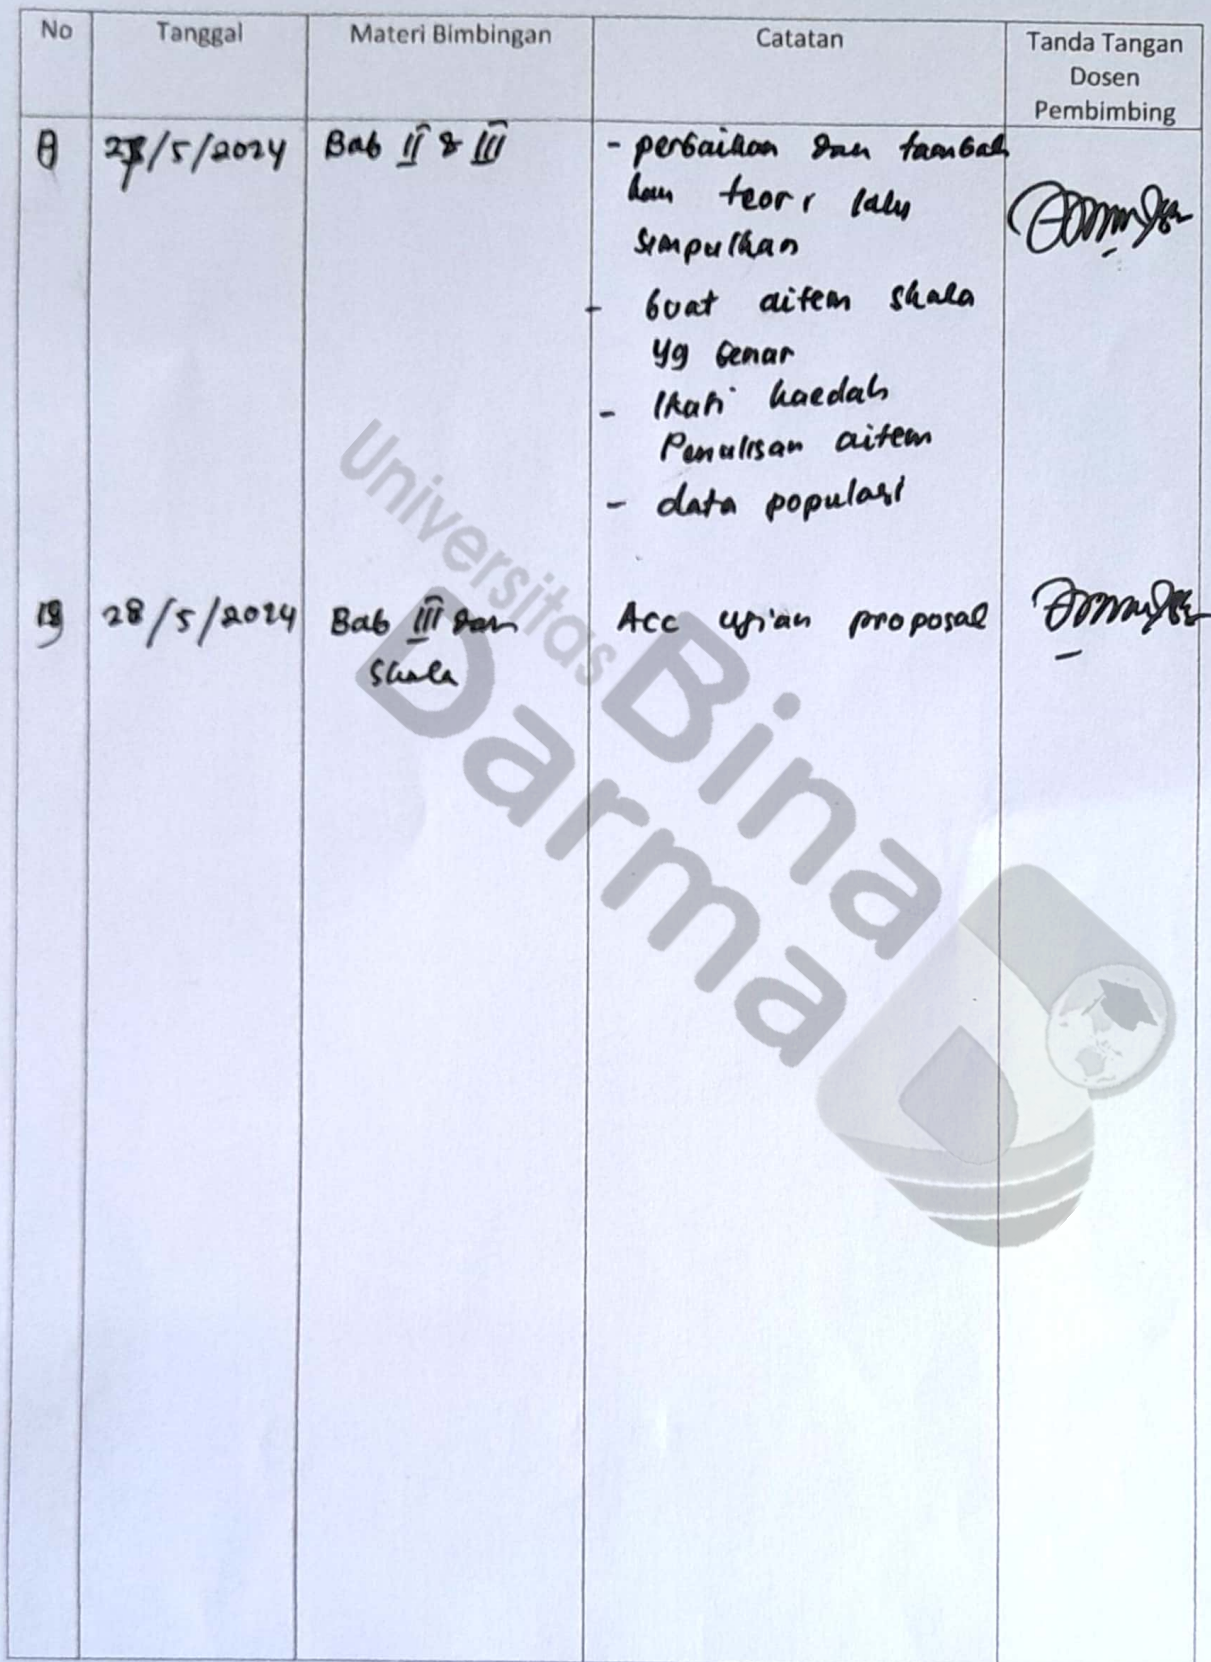 No Tanggal Materi Bimbingan Catatan Tanda Tangan
Dosen
Pembimbing
27/5/2024 Bab II & III - perbaikan dan tambah
kan teori lalu
simpulkan
- buat aitem skala
yg benar
- Ikuti kaedah
Penulisan aitem
- data populasi
28/5/2024 Bab III dan Acc ujian proposal
skala
Universitas
Bina
Darma